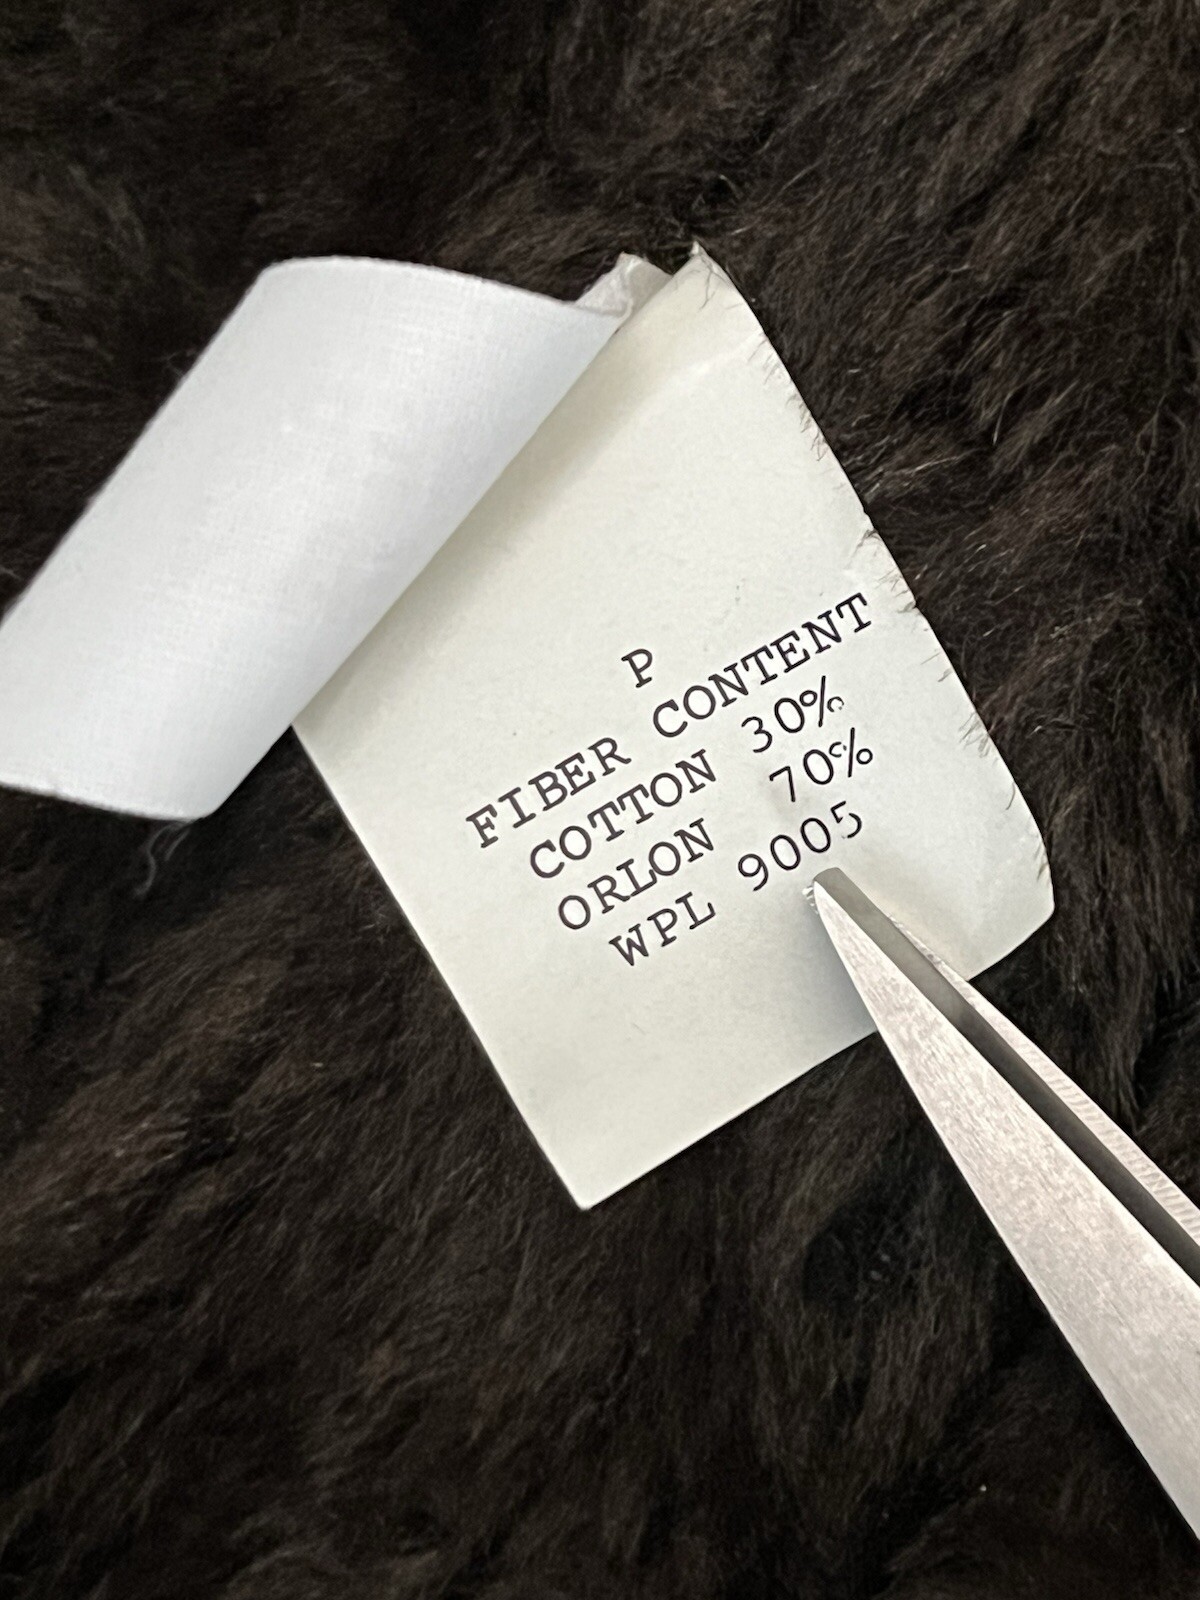 P
FIBER CONTENT
COTTON 30%
ORLON 70%
WPL 9005